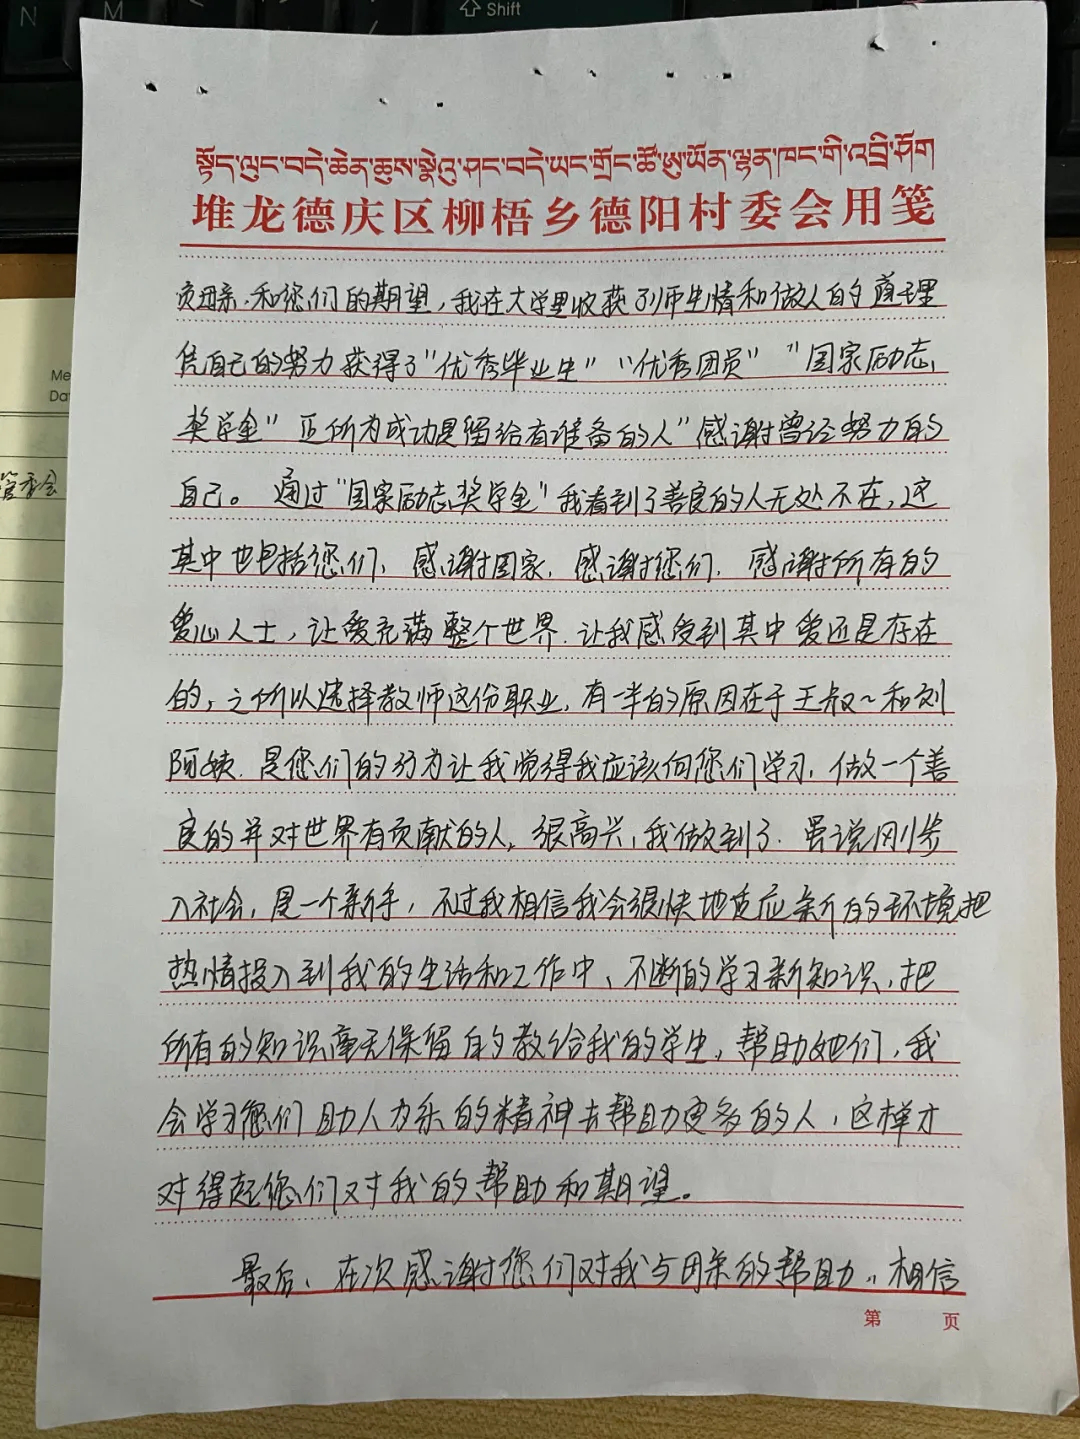 N
M
Shift
སྟོད་ལུང་བདེ་ཆེན་ཆུས་སྣེའུ་ཤང་བདེ་ཡང་གྲོང་ཚོ་ཨུ་ཡོན་ལྷན་ཁང་གི་འབྲི་ཤོག
堆龙德庆区柳梧乡德阳村委会用笺
负母亲、和您们的期望，我在大学里收获了师生情和做人的道理
凭自己的努力获得了“优秀毕业生”“优秀团员”“国家励志
奖学金”正所为成功是留给有准备的人”感谢曾经努力的
自己。通过“国家励志奖学金”我看到了善良的人无处不在，这
其中也包括您们、感谢国家、感谢您们、感谢所有的
爱心人士，让爱充满整个世界、让我感受到其中爱还是存在
的，之所以选择教师这份职业，有一半的原因在于王叔~和刘
阿姨、是您们的行为让我觉得我应该向您们学习，做一个善
良的并对世界有贡献的人，很高兴，我做到了、虽说刚步
入社会，是一个新手，不过我相信我会很快地适应新的环境把
热情投入到我的生活和工作中、不断的学习新知识，把
所有的知识毫无保留的教给我的学生，帮助她们，我
会学习您们助人为乐的精神去帮助更多的人，这样才
对得起您们对我的帮助和期望。
最后、在次感谢您们对我与母亲的帮助，相信
第 页
Me
Da
管委会